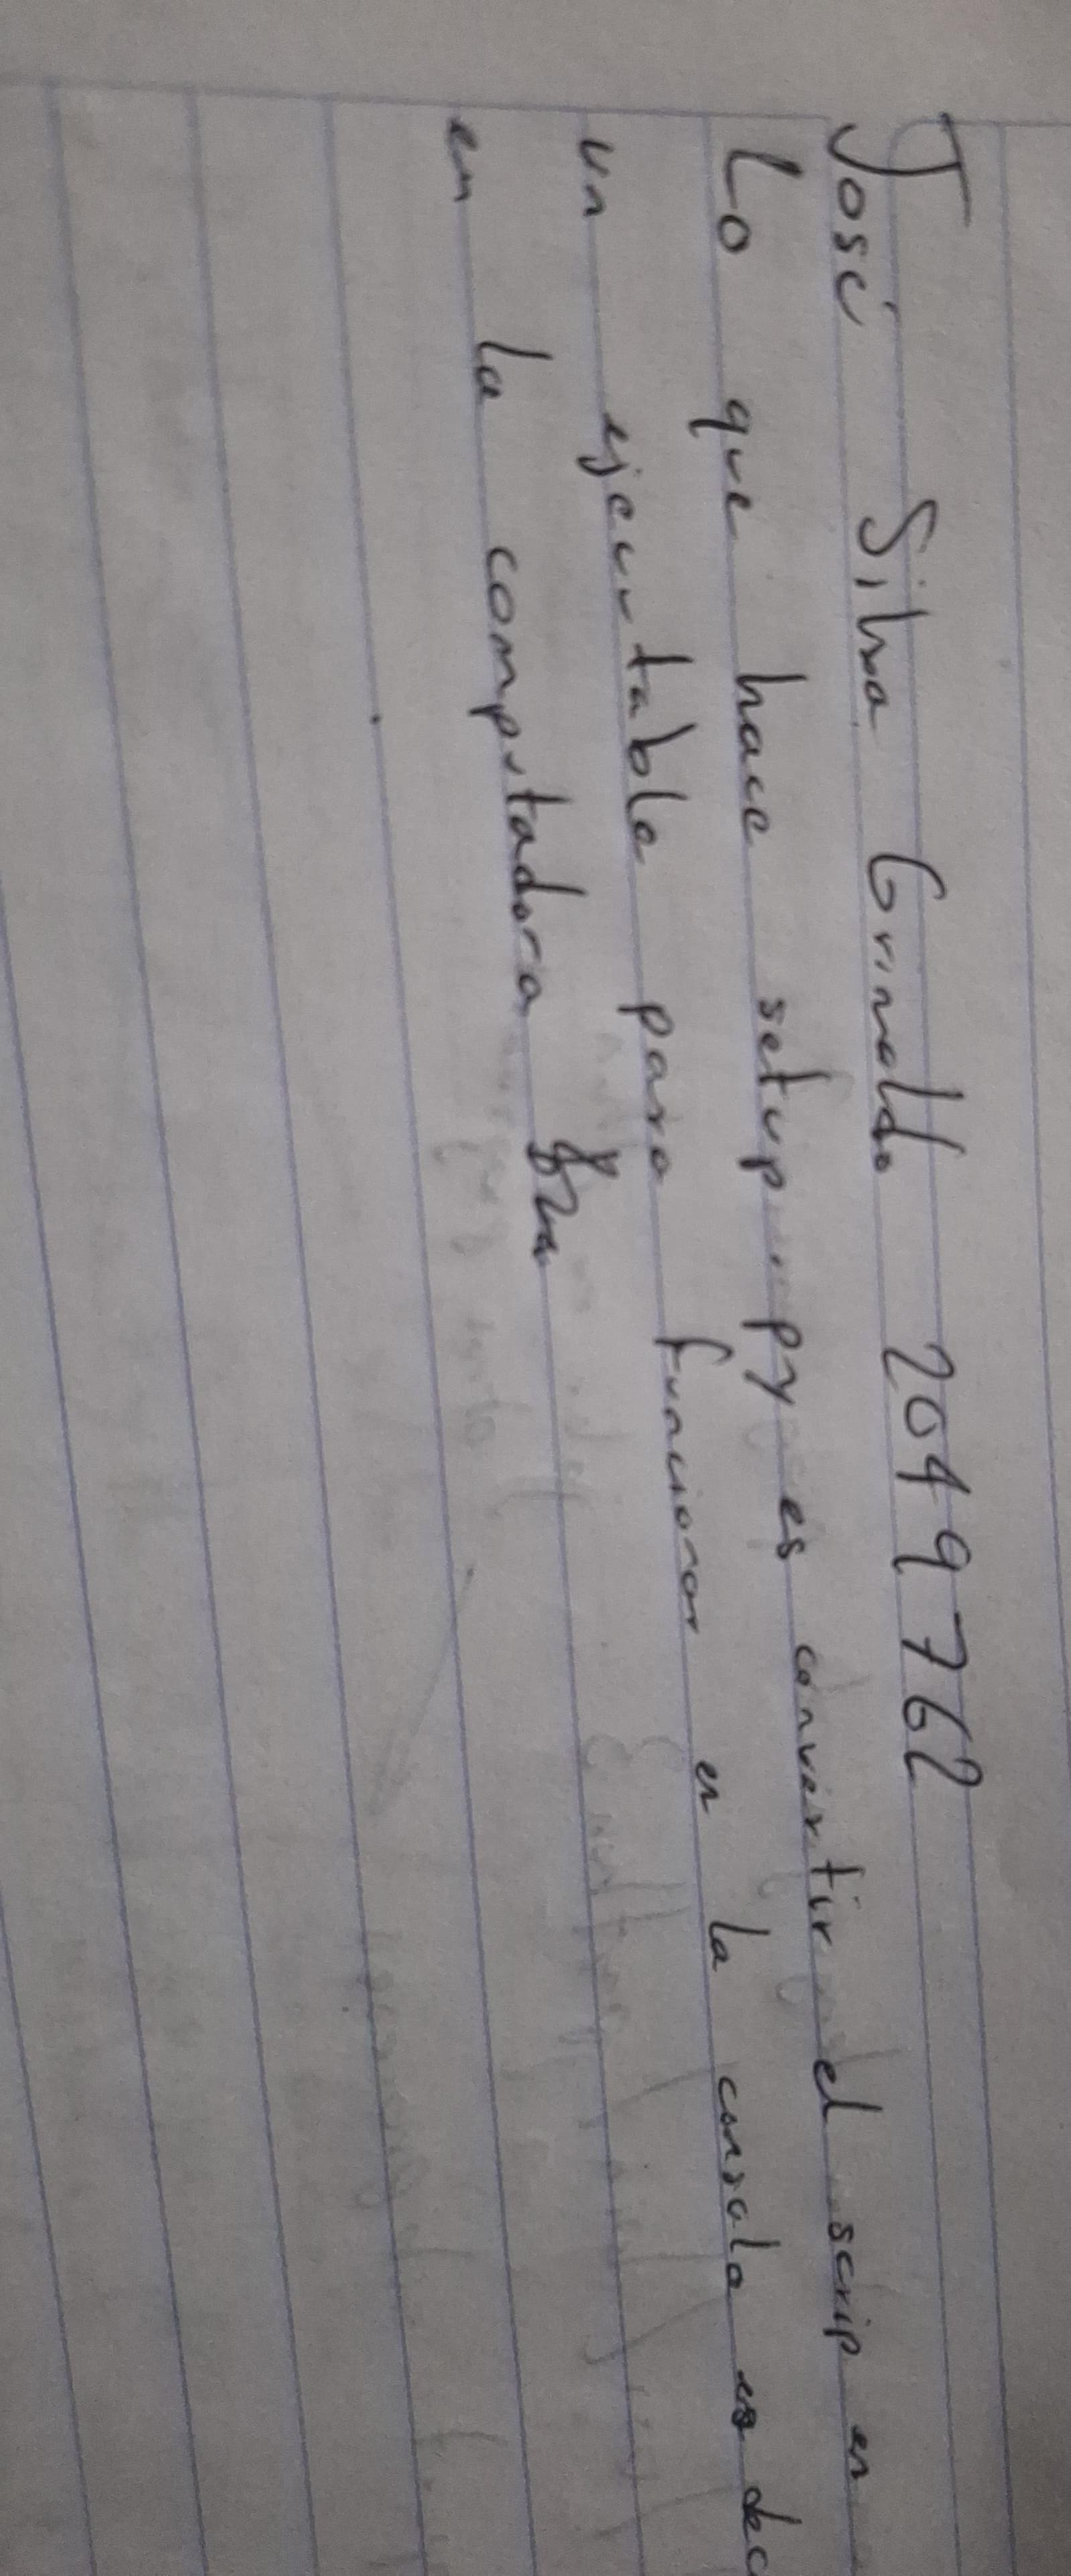 José Silva Grimaldo 2049762
Lo que hace setup py es convertir el scrip en
un ejecutable para funcionar en la consola es dec
en la computadora